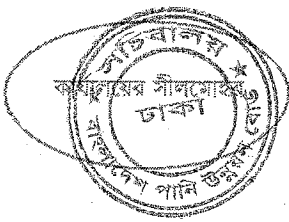 সচিবালয় ★
কার্যালয়ের সীলমোহর
ঢাকা
বাংলাদেশ পানি উন্নয়ন বোর্ড